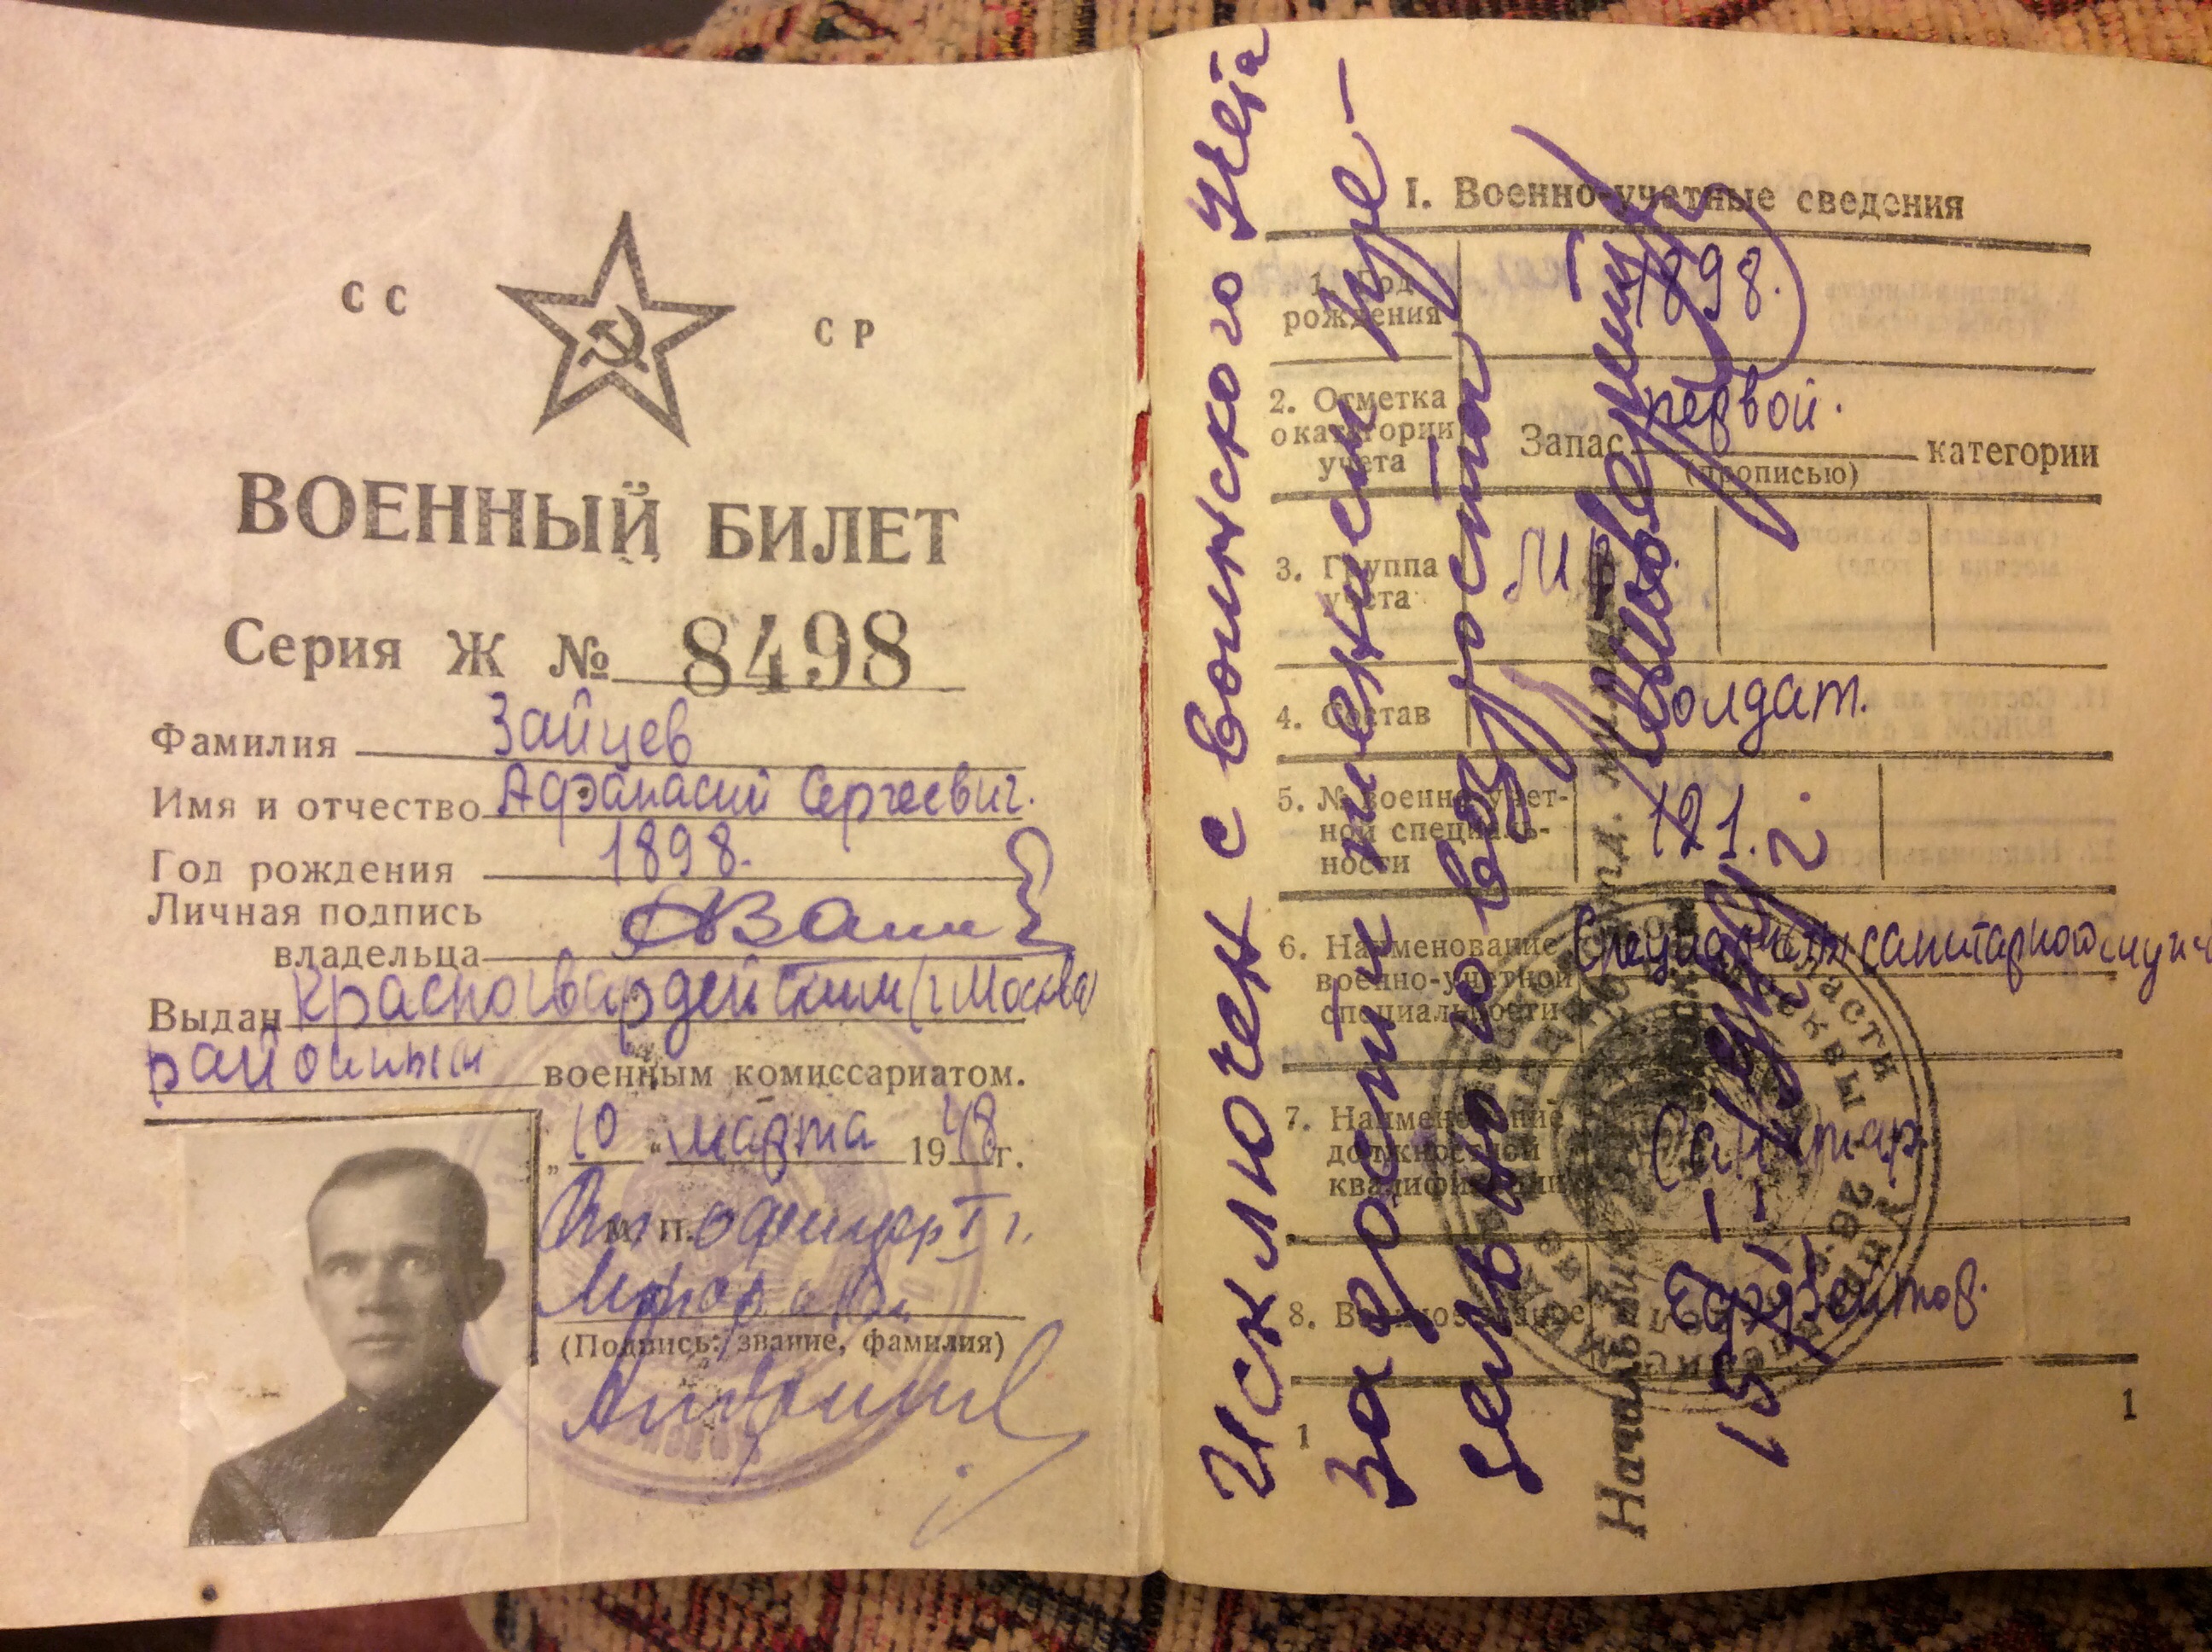 СС СР
ВОЕННЫЙ БИЛЕТ
Серия Ж № 8498
Фамилия Зайцев
Имя и отчество Афанасий Сергеевич.
Год рождения 1898.
Личная подпись
владельца
Выдан Красногвардейским (г Москва)
районным военным комиссариатом.
„10“ марта 1948 г.
М. П.
(Подпись: звание, фамилия)
Исключен с воинского учета
за достижением пре-
дельного возраста
I. Военно-учетные сведения
1. Год
рождения
1898.
2. Отметка
о категории
учета
Запас первой. категории
(прописью)
3. Группа
учета
4. Состав
Солдат.
5. № военно-учет-
ной специаль-
ности
121.
6. Наименование
военно-учетной
специальности
7. Наименование
должностной
квалификации
Санитар.
8. Воинское звание
Ефрейтор.
Начальник
1
1